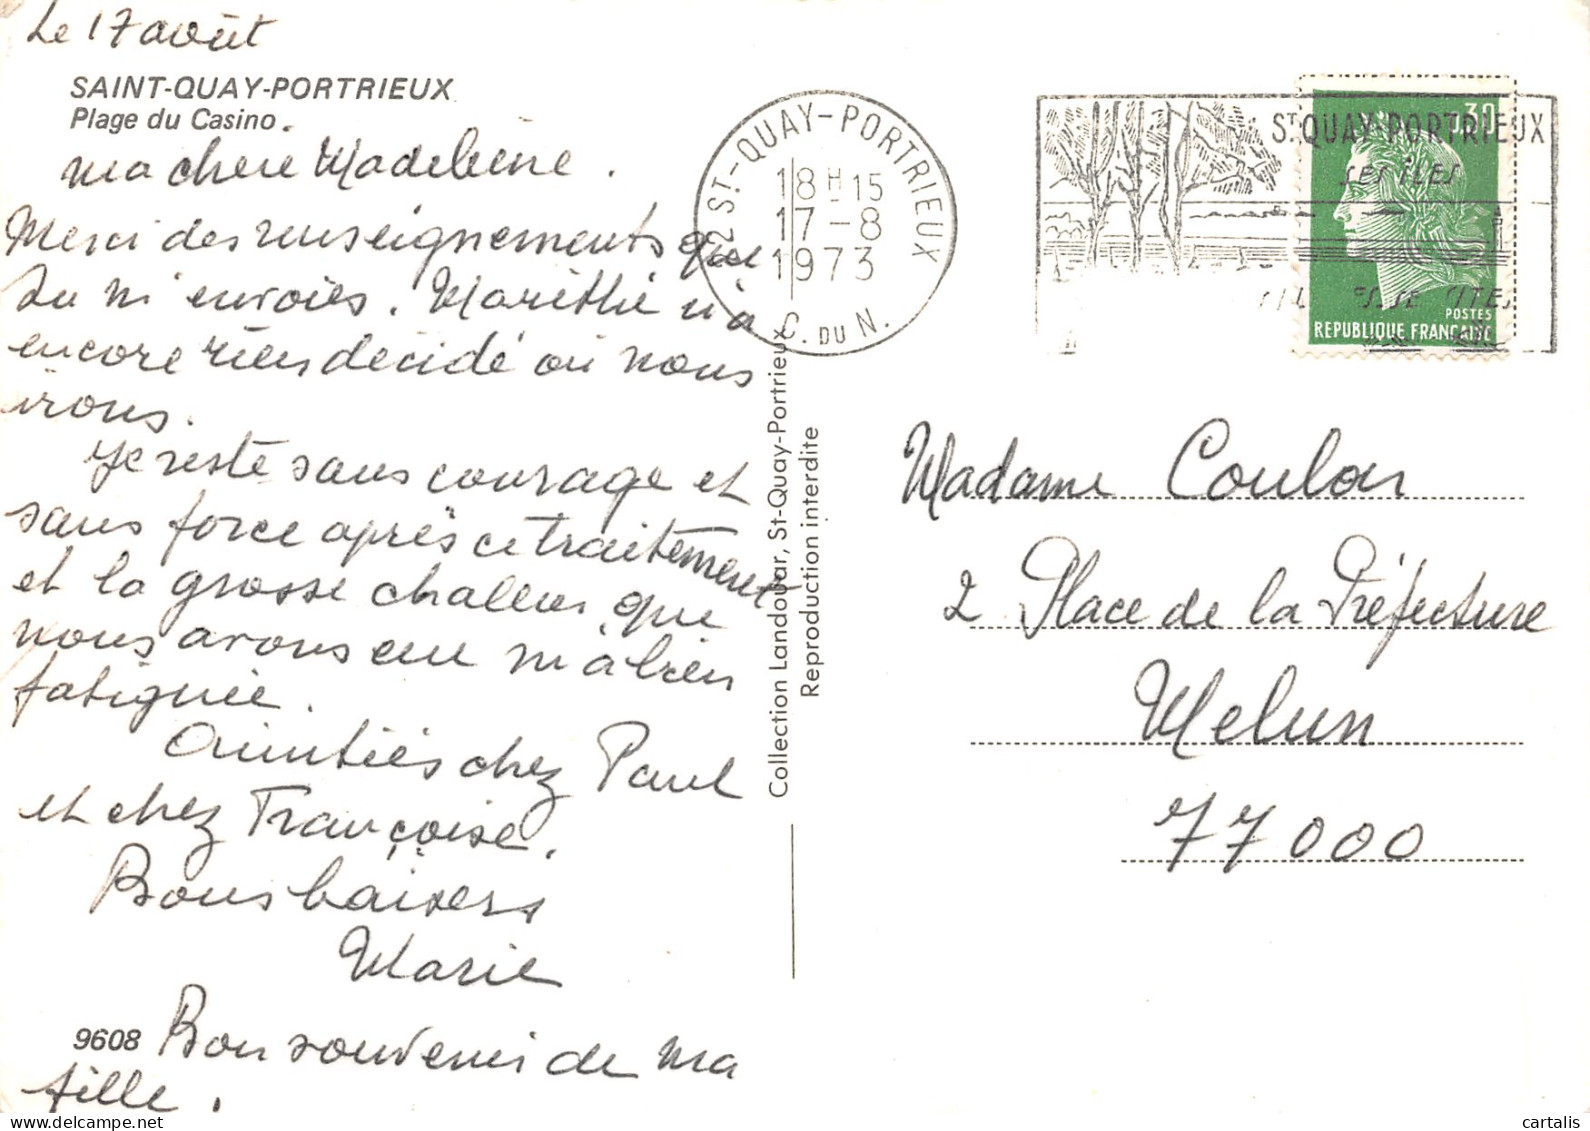 Le 17 août
SAINT-QUAY-PORTRIEUX
Plage du Casino.
Ma chere Madeleine.
Merci des renseignements que
tu m'envoies. Marithé n'a
encore rien decidé où nous
irons.
Je reste sans courage et
sans force après ce traitement
et la grosse chaleur que
nous avons eue m'a bien
fatiguée.
Amitiés chez Paul
et chez Françoise.
Bons baisers
Marie
9608
Bon souvenir de ma
fille.
Collection Landouar, St-Quay-Portrieux
Reproduction interdite
22 ST-QUAY-PORTRIEUX
18H15
17-8
1973
C. DU N.
ST QUAY-PORTRIEUX
SES ILES
30
POSTES
REPUBLIQUE FRANCAISE
Madame Coulon
2 Place de la Préfecture
Melun
77000
cartalis